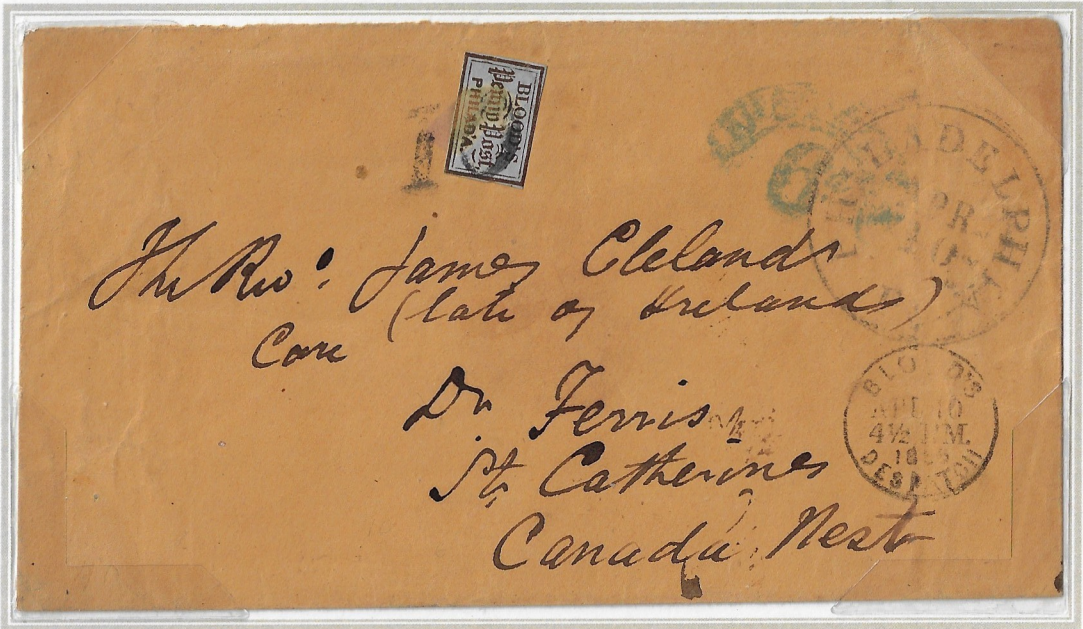 BLOOD'S
Penny Post
PHILAD'A.
1
6
PHILADELPHIA
APR
10
The Revd. James Cleland
(late of Ireland)
Care
Dr Ferris
St Catherines
Canada West
BLOOD'S
APL 10
4½ P.M.
DESPATCH